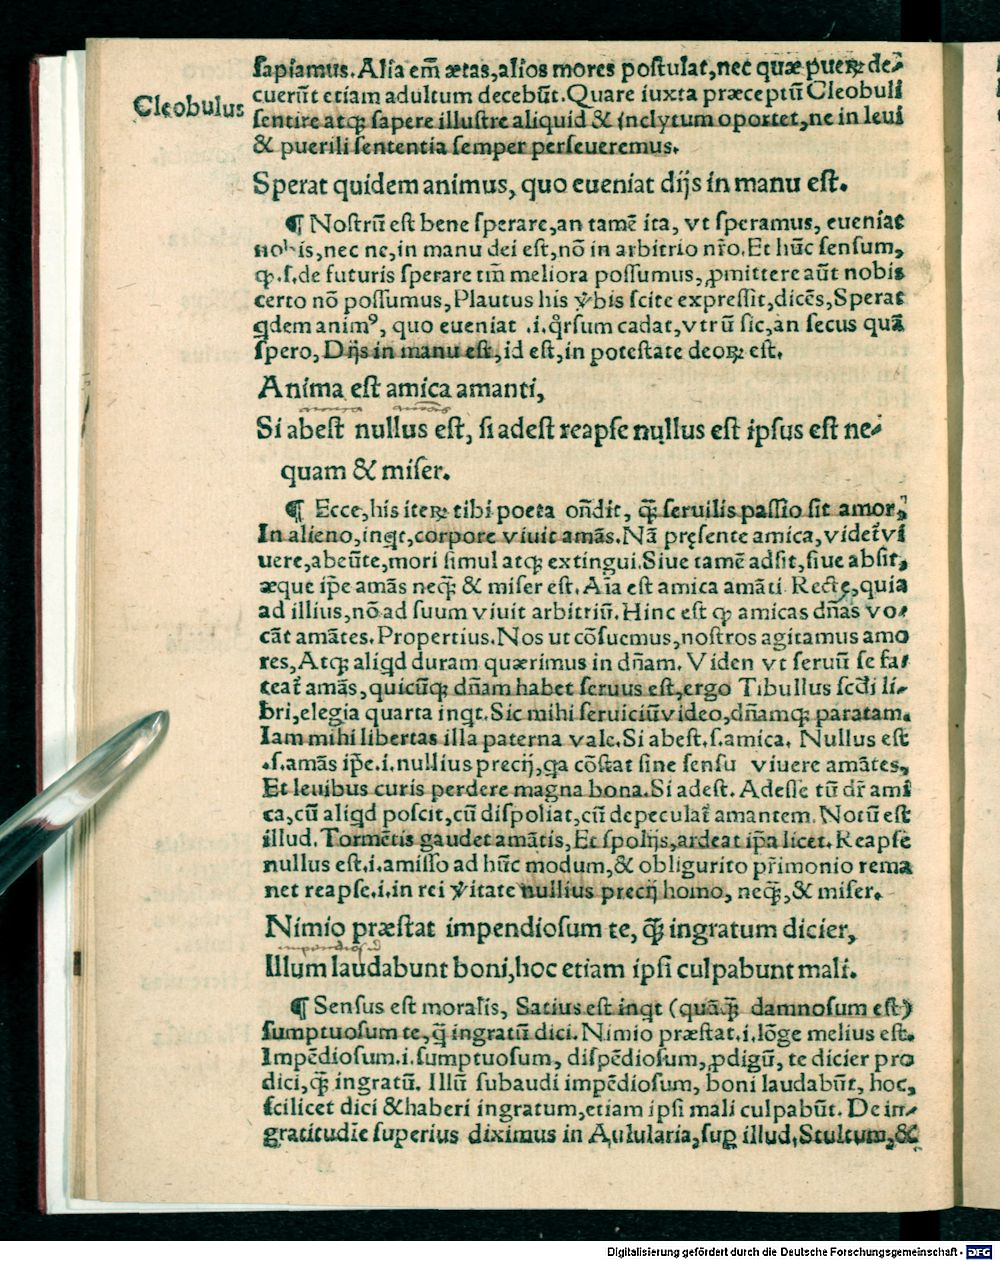 sapiamus. Alia em̄ ætas, alios mores postulat, nec quæ pueꝝ de⸗
Cleobulus
cuerūt etiam adultum decebūt. Quare iuxta præceptū Cleobuli
sentire atqꝫ sapere illustre aliquid & inclytum oportet, ne in leui
& puerili sententia semper perseueremus.
Sperat quidem animus, quo eueniat dijs in manu est.
¶ Nostrū est bene sperare, an tamē ita, vt speramus, eueniat
nobis, nec ne, in manu dei est, nō in arbitrio nr̄o. Et hūc sensum,
ꝙ .s. de futuris sperare tm̄ meliora possumus, ꝓmittere aūt nobis
certo nō possumus, Plautus his v̓bis scite expressit, dicēs, Sperat
qdem animꝰ, quo eueniat .i. qr̄sum cadat, vtrū sic, an secus quā
spero, Dijs in manu est, id est, in potestate deoꝝ est.
Anima est amica amanti,
Si abest nullus est, si adest reapse nullus est ipsus est ne⸗
quam & miser.
¶ Ecce, his iteꝝ tibi poeta on̄dit, qꝫ̄ seruilis passio sit amor,
In alieno, inqt, corpore viuit amās. Nā pręsente amica, videt᷑ vi
uere, abeūte, mori simul atqꝫ extingui. Siue tamē adsit, siue absit,
æque ip̄e amās neqꝫ̄ & miser est. Aīa est amica amāti Recte, quia
ad illius, nō ad suum viuit arbitriū. Hinc est ꝙ amicas dn̄as vo⸗
cāt amātes. Propertius. Nos ut cōsuemus, nostros agitamus amo
res, Atqꝫ aliqd duram quærimus in dn̄am. Viden vt seruū se fa⸗
teat᷑ amās, quicūqꝫ dn̄am habet seruus est, ergo Tibullus scd̄i li⸗
bri, elegia quarta inqt. Sic mihi seruiciū video, dn̄amqꝫ paratam.
Iam mihi libertas illa paterna vale. Si abest. s. amica. Nullus est
.s. amās ip̄e .i. nullius precij, qa cōstat sine sensu viuere amātes,
Et leuibus curis perdere magna bona. Si adest. Adesse tū dr̄ ami
ca, cū aliqd poscit, cū dispoliat, cū depeculat᷑ amantem. Notū est
illud. Tormētis gaudet amātis, Et spolijs, ardeat ip̄a licet. Reapse
nullus est .i. amisso ad hūc modum, & obligurito pr̄imonio rema
net reapse .i. in rei v̓itate nullius precij homo, neqꝫ̄, & miser.
Nimio præstat impendiosum te, qꝫ̄ ingratum dicier,
impendiosū
Illum laudabunt boni, hoc etiam ipsi culpabunt mali.
¶ Sensus est moralis, Satius est inqt (quāqꝫ̄ damnosum est)
sumptuosum te, q̄ ingratū dici. Nimio præstat .i. lōge melius est.
Impēdiosum .i. sumptuosum, dispēdiosum, ꝓdigū, te dicier pro
dici, qꝫ̄ ingratū. Illū subaudi impēdiosum, boni laudabūt, hoc,
scilicet dici & haberi ingratum, etiam ipsi mali culpabūt. De in⸗
gratitudīe superius diximus in Aulularia, suꝑ illud, Stultum, &
Digitalisierung gefördert durch die Deutsche Forschungsgemeinschaft - DFG